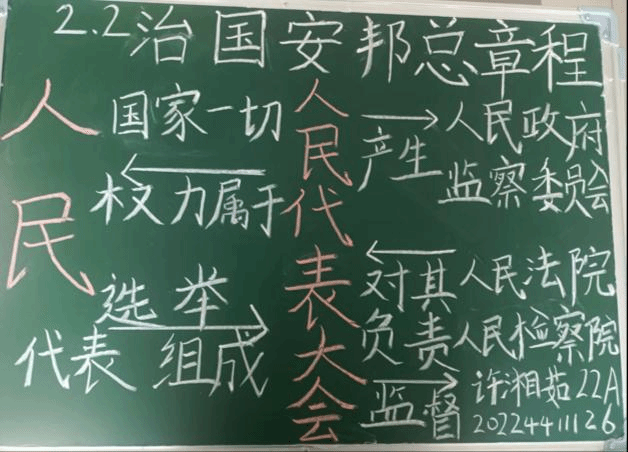 2.2治国安邦总章程
人民
国家一切
权力属于
选举
代表 组成
人民代表大会
产生
对其
负责
监督
人民政府
监察委员会
人民法院
人民检察院
许湘茹22A
20224411126